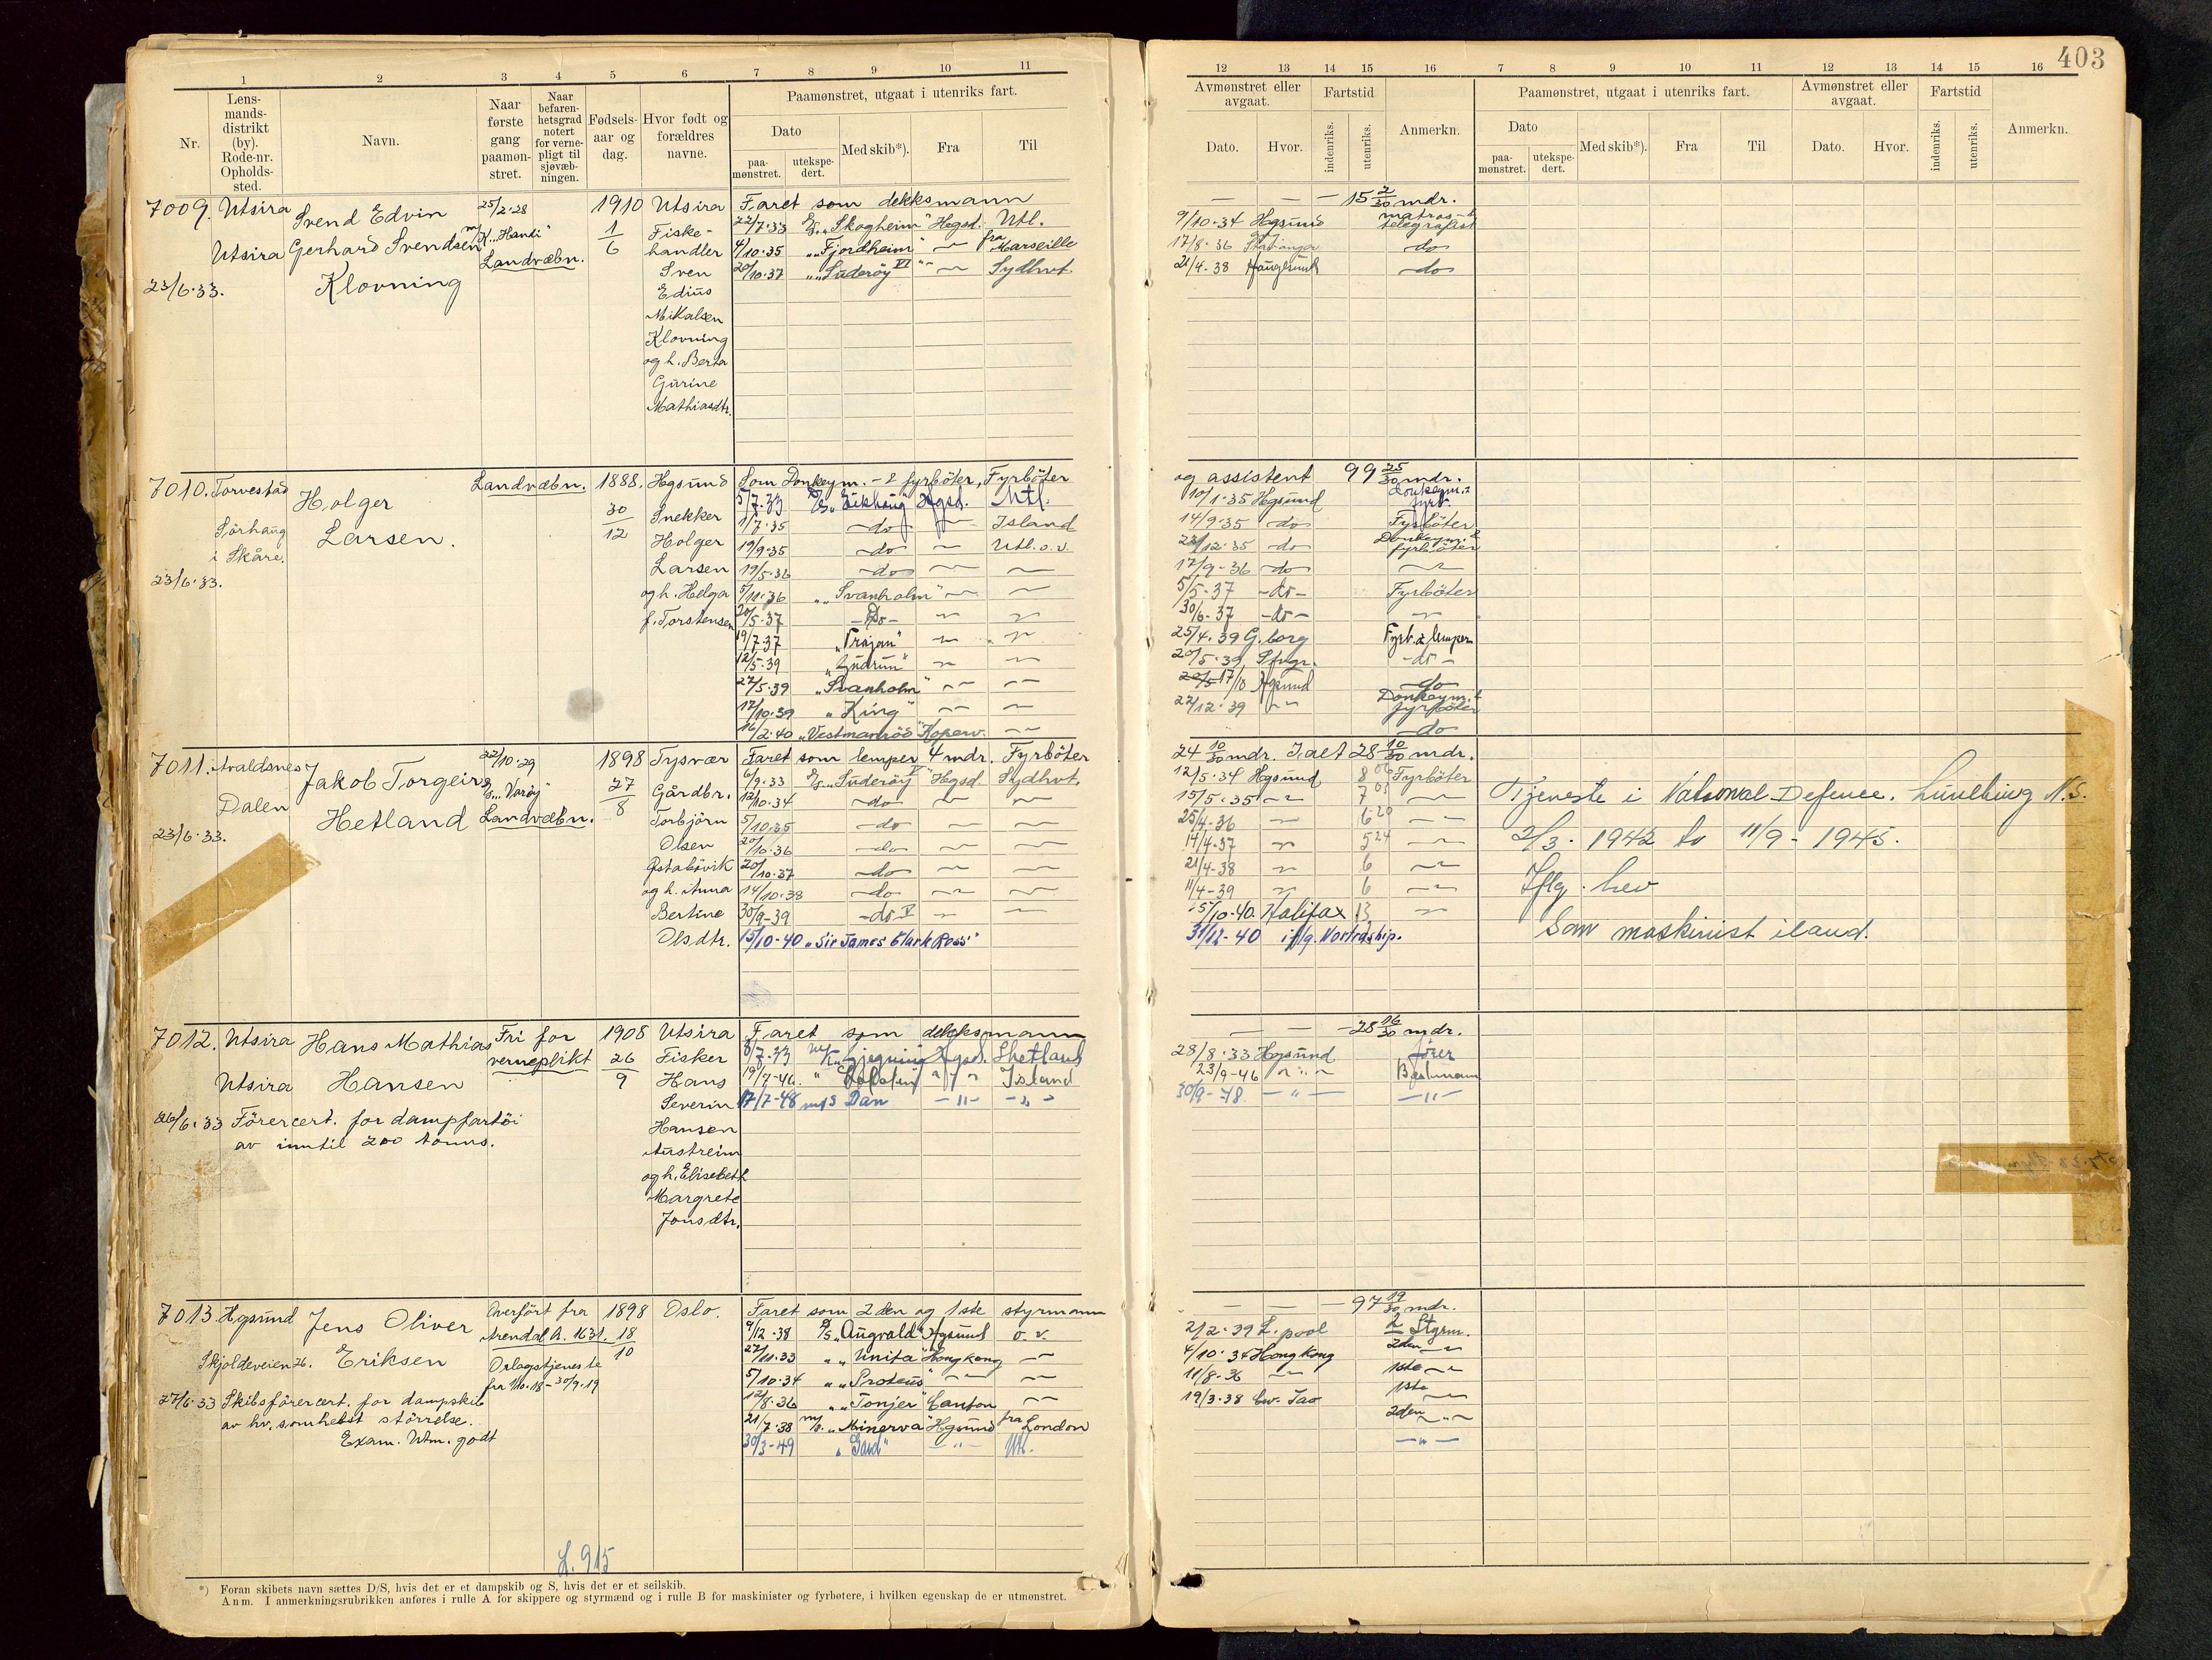 403
1 2 3 4 5 6 7 8 9 10 11
12 13 14 15 16 7 8 9 10 11 12 13 14 15 16
Nr.
Lens-
mands-
distrikt
(by).
Rode-nr.
Opholds-
sted.
Navn.
Naar
første
gang
paamøn-
stret.
Naar
befaren-
hetsgrad
notert
for verne-
pligt til
sjøvæb-
ningen.
Fødsels-
aar og
dag.
Hvor født og
forældres
navne.
Paamønstret, utgaat i utenriks fart.
Dato
paa-
mønstret.
utekspe-
dert.
Med skib*).
Fra
Til
Avmønstret eller
avgaat.
Dato.
Hvor.
Fartstid
indenriks.
utenriks.
Anmerkn.
Paamønstret, utgaat i utenriks fart.
Dato
paa-
mønstret.
utekspe-
dert.
Med skib*).
Fra
Til
Avmønstret eller
avgaat.
Dato.
Hvor.
Fartstid
indenriks.
utenriks.
Anmerkn.
7009. Utsira
Utsira
23/6.33.
Svend Edvin
Gerhard Svendsen
Klovning
25/2.28
m/K. "Handi"
Landvæbn.
1910
1
6
Utsira
Fiske-
handler
Sven
Edius
Mikalsen
Klovning
og h. Berta
Gurine
Mathiasdtr.
Faret som dekksmann — — — 15 2/30 mdr.
22/7.33 D/S. "Skogheim" Hgsd. Utl. 9/10-34 Hgsund matros- & telegrafist
4/10.35 " "Fjordheim" — fra Marseille 17/8.36 Stavanger do
20/10.37 " "Suderöy VI" — Sydhvt. 21/4-38 Haugesund do
7010. Torvestad
Sörhaug
i Skåre.
23/6.33.
Holger
Larsen.
Landvæbn.
1888.
30
12
Hgsund
Snekker
Holger
Larsen
og h. Helga
f. Torstensen
Som Donkeym.- & fyrböter, Fyrböter og assistent 99 25/30 mdr.
5/7.33 D/S. "Eikhaug" Hgsd. Utl. 10/1.35 Hgsund Donkeym. & fyrb.
1/7.35 do — Island 14/9.35 do Fyrböter
19/9.35 do — Utl. o.v. 22/12.35 do Donkeym. & fyrböter
19/5.36 do — — 17/9-36 do —
5/11.36 " "Svanholm" — — 5/5-37 -do- Fyrböter
20/5.37 -Do- — — 30/6-37 -do- —
19/7.37 "Trajan" — — 25/4.39 G.borg Fyrb. & lemper
12/5-39 "Gudrun" — — 20/5.39 -do-
27/5.39 "Svanholm" — — 17/10 Hgsund do
17/10.39 "King" — — 22/12.39 — Donkeym. & fyrböter
16/2.40 "Vestmanröd" Koperv. — do
7011. Avaldsnes
Dalen
23/6.33.
Jakob Torgeir
Hetland
22/10.29
D/S. "Varöy"
Landvæbn.
1898
27
8
Tysvær
Gårdbr.
Torbjörn
Olsen
Östabövik
og h. Anna
Bertine
Olsdtr.
Faret som lemper 4 mdr. Fyrböter 24 10/30 mdr. I alt 28 10/30 mdr.
6/9.33 D/S. "Suderöy V" Hgsd. Sydhvt. 12/5.34 Hgsund 8 Fyrböter
12/10.34 do — — 15/5.35 — 7 —
5/10.35 do — — 25/4-36 — 6 20 —
20/10.36 do — — 14/4-37 — 5 24 —
20/10.37 do — — 21/4-38 — 6 —
14/10.38 do — — 11/4-39 — 6 —
30/9-39 -do- V — — 15/10-40. Halifax 13 —
15/10-40 "Sir James Clark Ross" 31/12-40 iflg. Nortraship.
Tjeneste i National Defence. N.S.
2/3. 1942 to 11/9-1945.
Iflg. brev
Som maskinist iland.
7012. Utsira
Utsira
Hans Mathias
Hansen
26/6.33 Förercert. for dampfartöi
av inntil 200 tonns.
Fri for
verneplikt
1908
26
9
Utsira
Fisker
Hans
Severin
Hansen
Austreim
og h. Elisebeth
Margrete
Jonsdtr.
Faret som dekksmann — — -28 16/30 mdr.
8/7.33 M/K. Hgsd. Shetland 28/8.33 Hgsund förer
19/7-46. " " Island 23/9-46 "
17/7-48 m/s Dan — " — — " — 30/9-48 — " — — " —
7013 Hgsund
Skjoldeveien 26.
Jens Oliver
Eriksen
27/6.33 Skibsförercert. for dampskib
av hv. somhelst störrelse.
Exam. Utm. godt
Overfört fra
Arendal A. 1631.
Orlogstjeneste
fra 1/10.18-30/9.19
1898
18
10
Oslo.
Faret som 2den og 1ste styrmann — — -97 19/30 mdr.
9/12.38 D/S "Augvald" Hgsund o.v. 2/2.39 L.pool 2 Styrm.
27/11.33 " "Unita" Hongkong — 4/10.34 Hong kong 2den —
5/10.34 " "Proteus" — — 11/8-36 — 1ste —
12/8.36 " "Tonjer" Canton — 19/3.38 1ste —
21/7.38 m/s. "Minerva" Hgsund fra London 2den —
30/3-49 — " — Utl. — " —
L. 915
*) Foran skibets navn sættes D/S, hvis det er et dampskib og S, hvis det er et seilskib.
Anm. I anmerkningsrubrikken anføres i rulle A for skippere og styrmænd og i rulle B for maskinister og fyrbøtere, i hvilken egenskap de er utmønstret.